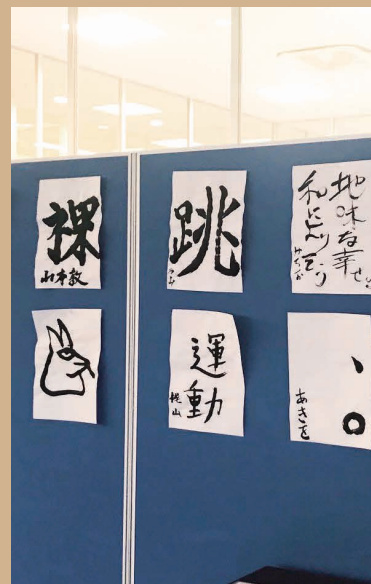 裸
山本敦
跳
地味な幸せを
私に
運動
梶山
、。
あきを